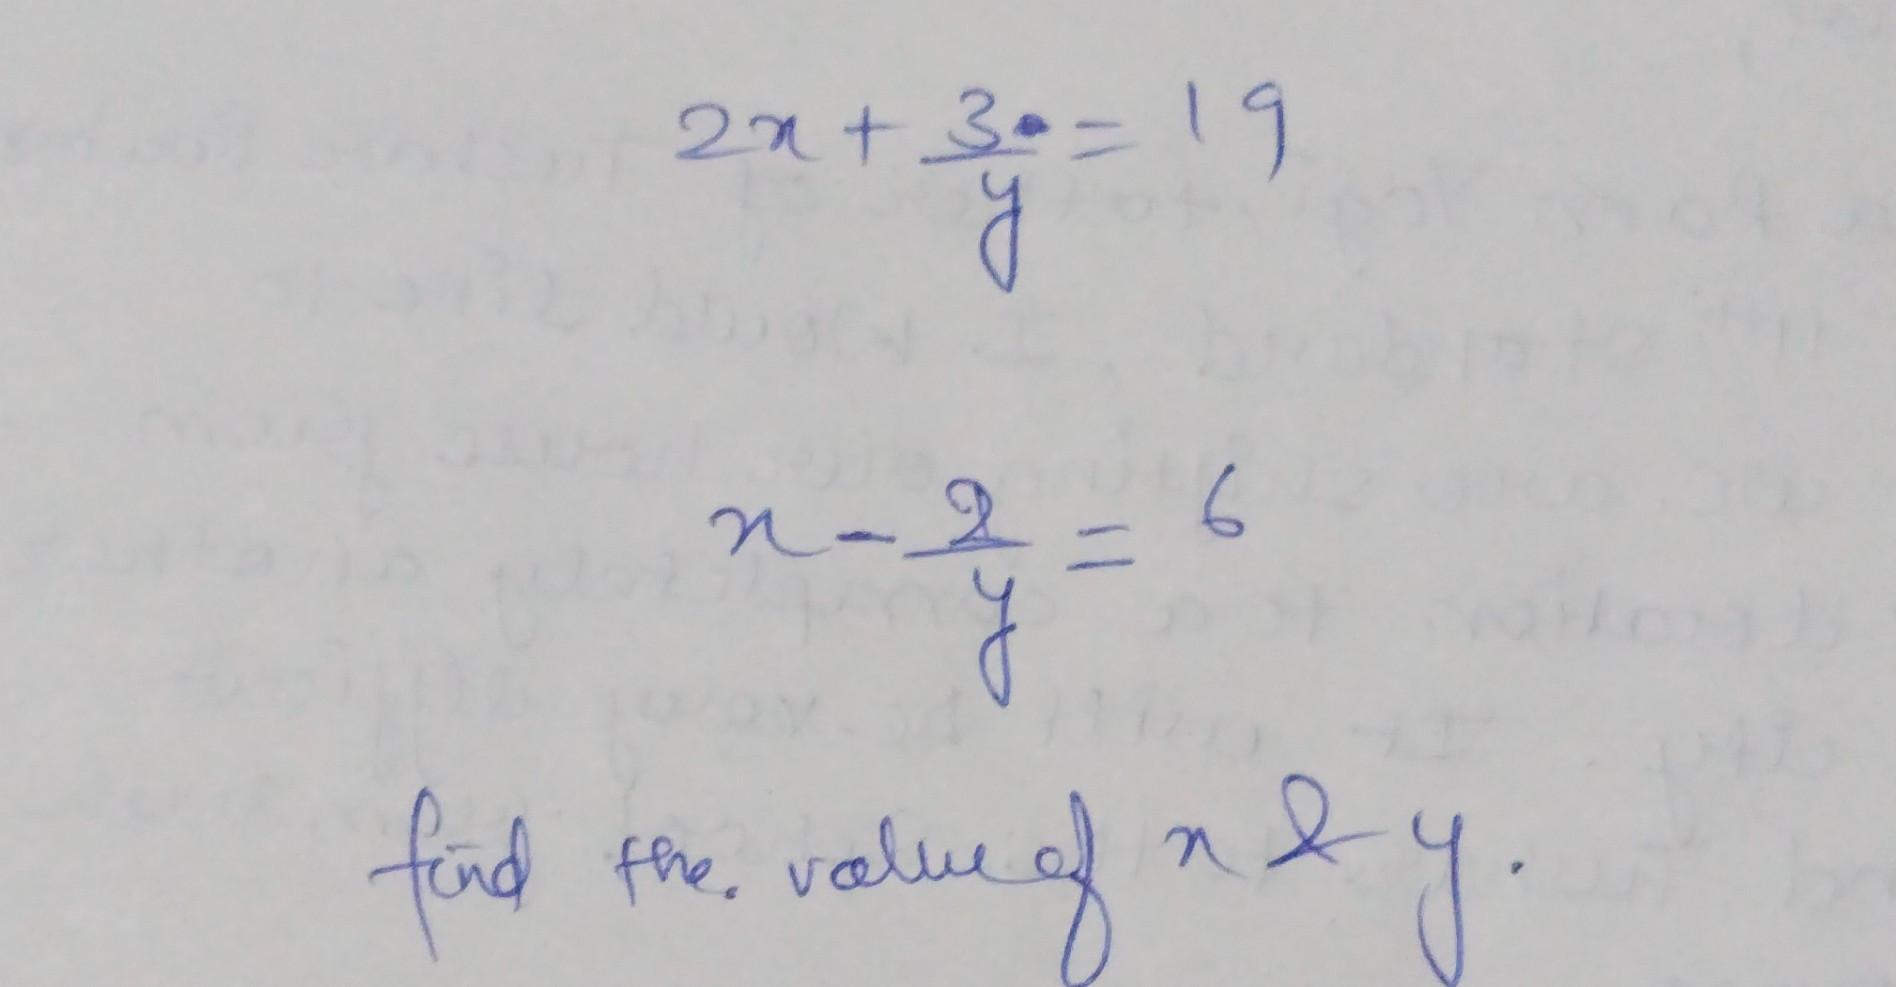 2x + 3/y = 19
x - 2/y = 6
find the value of x & y.